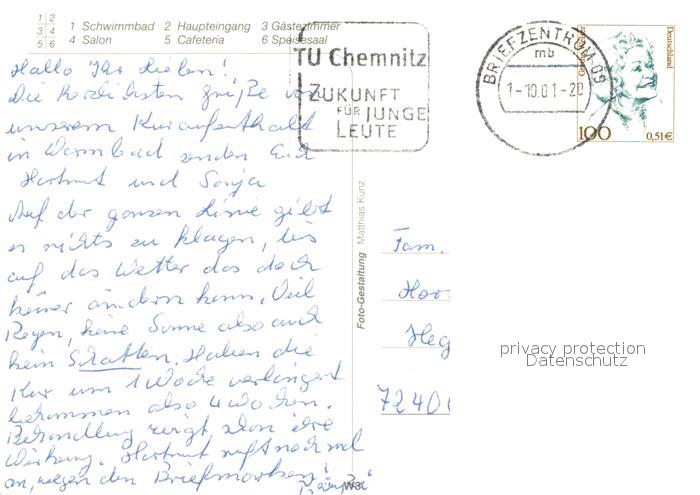 1 2
3 4
5 6
1 Schwimmbad 2 Haupteingang 3 Gästezimmer
4 Salon 5 Cafeteria 6 Speisesaal
Hallo Ihr Lieben!
Die herzlichsten Grüße von
unserem Kuraufenthalt
in Warmbad senden Euch
Hartmut und Sonja
Auf der ganzen Linie gibt
es nichts zu klagen, bis
auf das Wetter das doch
keiner ändern kann. Viel
Regen, keine Sonne also auch
kein Schatten. Haben die
Kur um 1 Woche verlängert
bekommen also 4 Wochen.
Behandlung zeigt schon ihre
Wirkung. Hartmut ruft noch mal
an, wegen den Briefmarken!
TU Chemnitz
ZUKUNFT
FÜR JUNGE
LEUTE
BRIEFZENTRUM 09
mb
1-10.01-20
Deutschland
100
0,51€
Foto-Gestaltung Matthias Kunz
Fam.
Hoo
Heg
7240
privacy protection
Datenschutz